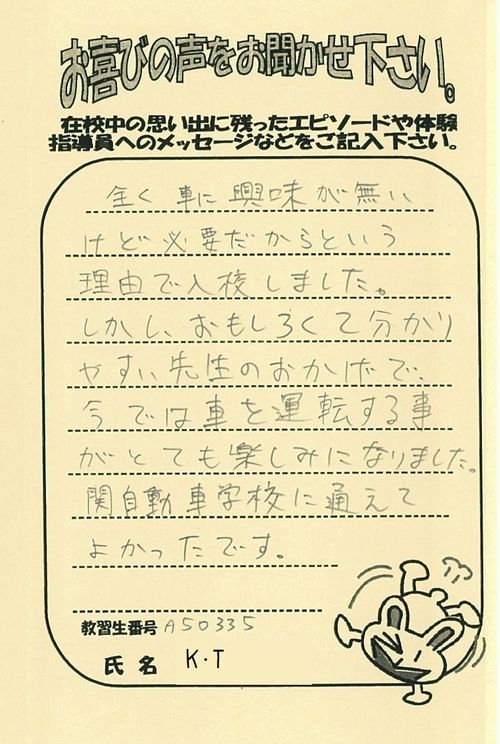 お喜びの声をお聞かせ下さい。
在校中の思い出に残ったエピソードや体験
指導員へのメッセージなどをご記入下さい。
全く車に興味が無い
けど必要だからという
理由で入校しました。
しかし、おもしろくて分かり
やすい先生のおかげで、
今では車を運転する事
がとても楽しみになりました。
関自動車学校に通えて
よかったです。
教習生番号 A50335
氏名 K・T